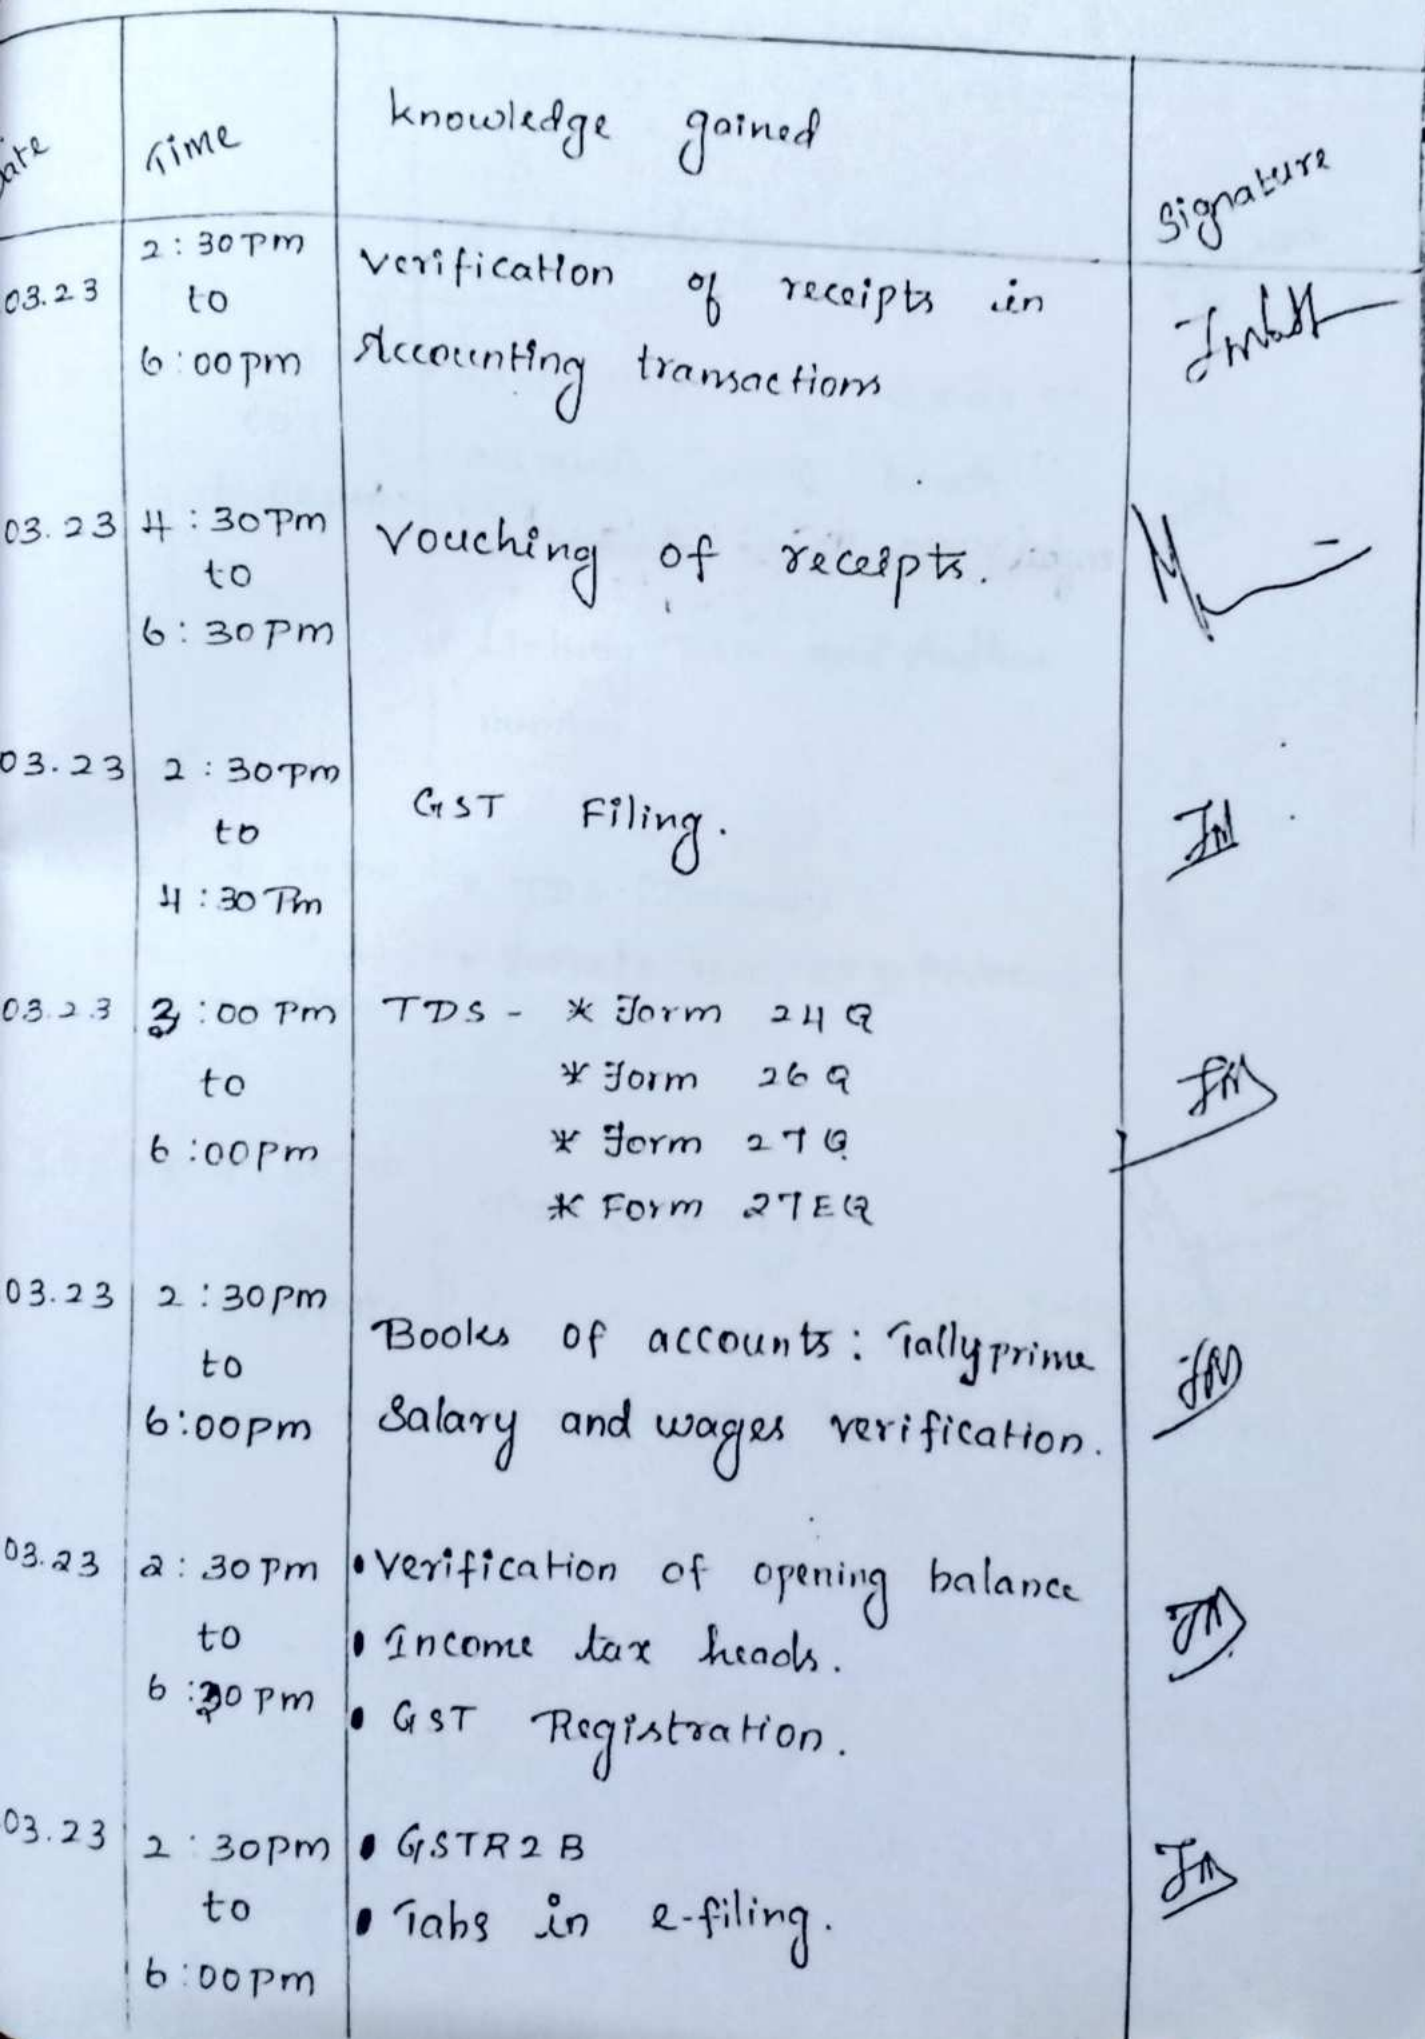 ate Time knowledge gained Signature
03.23 2:30pm to 6:00pm
verification of receipts in
Accounting transactions
03.23 4:30pm to 6:30pm
Vouching of receipts.
03.23 2:30pm to 4:30pm
GST Filing.
03.23 3:00pm to 6:00pm
TDS - * Form 24Q
* Form 26Q
* Form 27Q
* Form 27EQ
03.23 2:30pm to 6:00pm
Books of accounts: Tallyprime
Salary and wages verification.
03.23 2:30pm to 6:30pm
• Verification of opening balance
• Income tax heads.
• GST Registration.
03.23 2:30pm to 6:00pm
• GSTR2B
• Tabs in e-filing.